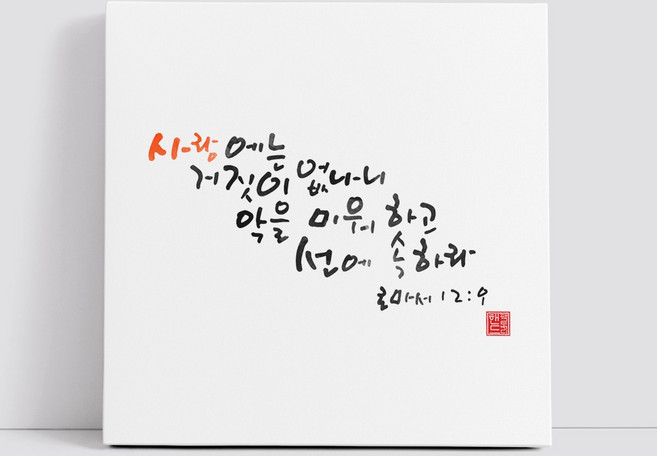 사랑에는
거짓이 없나니
악을 미워하고
선에 속하라
로마서 12:9